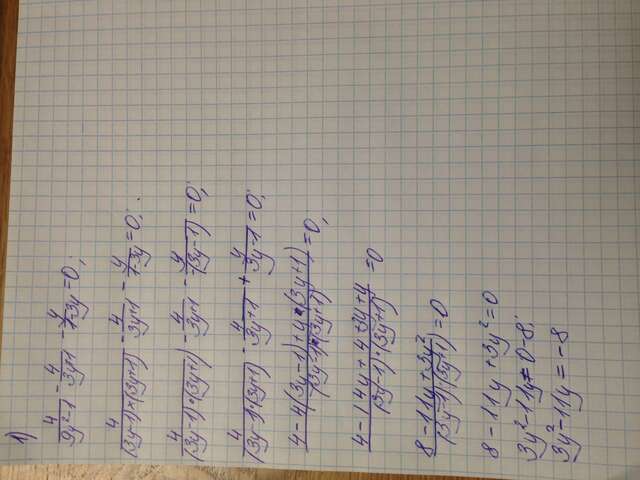 1)
4/(9y²-1) - 4/(3y+1) - y/(1-3y) = 0;
4/((3y-1)*(3y+1)) - 4/(3y+1) - y/(1-3y) = 0;
4/((3y-1)*(3y+1)) - 4/(3y+1) - y/(-(3y-1)) = 0;
4/((3y-1)*(3y+1)) - 4/(3y+1) + y/(3y-1) = 0;
(4-4(3y-1)+y*(3y+1))/((3y-1)*(3y+1)) = 0;
8-11y+3y²/((3y-1)*(3y+1)) = 0
8-11y+3y² = 0
3y²-11y = 0-8;
3y²-11y = -8